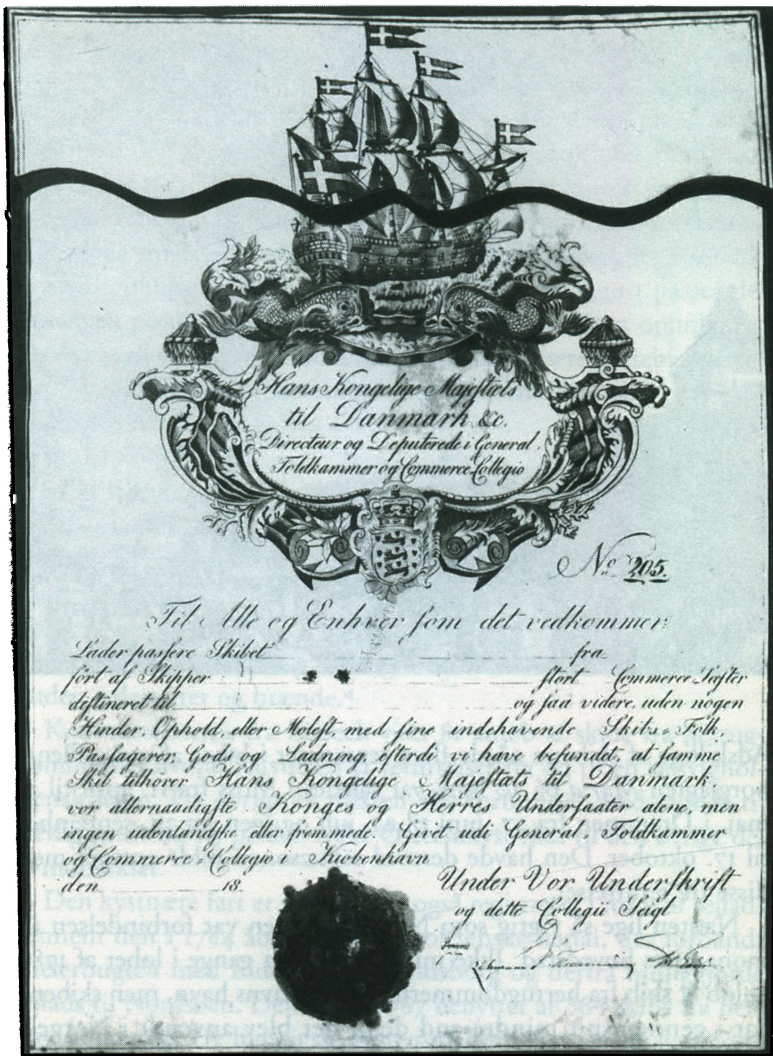 Hans Kongelige Majeſtæts
til Danmark &c.
Directeur og Deputerede i General
Toldkammer og Commerce Collegio
No 205.
Til Alle og Enhver ſom det vedkommer:
Lader paſſere Skibet fra
fört af Skipper ſtort Commerce Læſter
deſtineret til og ſaa videre, uden nogen
Hinder, Ophold, eller Moleſt, med ſine indehavende Skibs-Folk,
Paſſagerer, Gods og Ladning, efterdi vi have befundet, at ſamme
Skib tilhörer Hans Kongelige Majeſtæts til Danmark,
vor allernaadigſte Konges og Herres Underſaatter alene, men
ingen udenlandſke eller fremmede. Givet udi General Toldkammer
og Commerce-Collegio i Kiöbenhavn
den 18
Under Vor Underſkrift
og dette Collegii Seigl